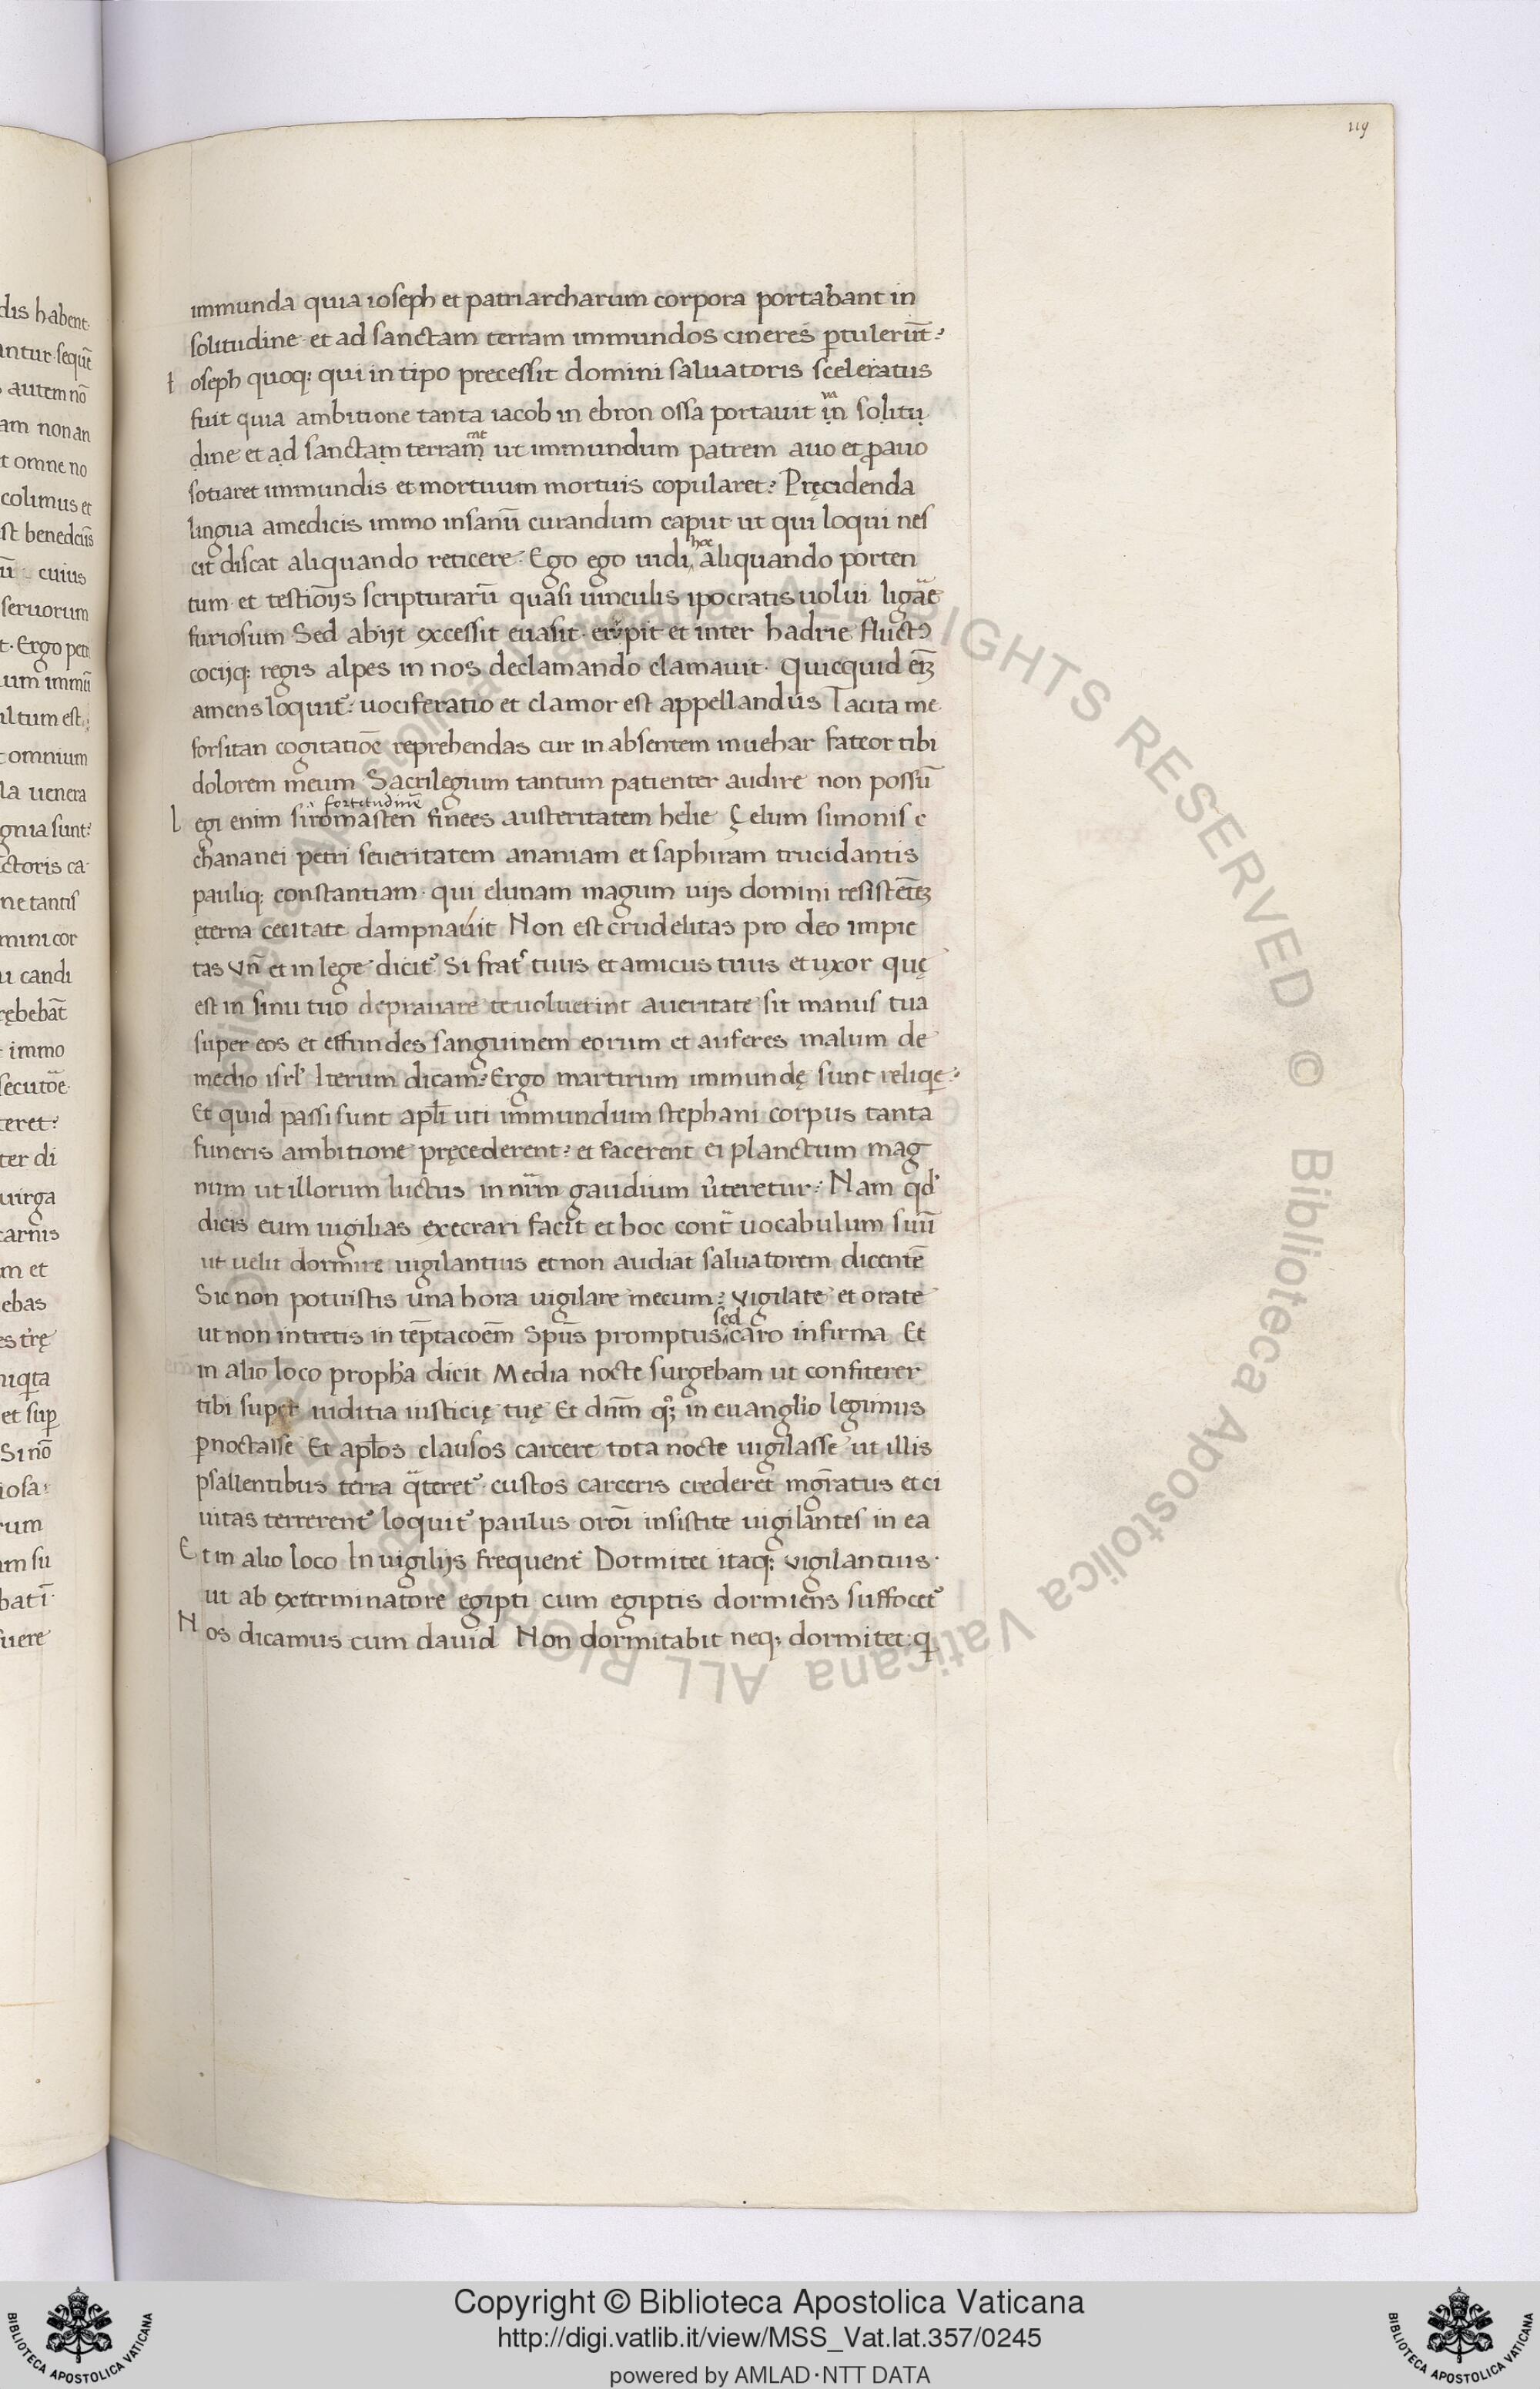 119
immunda quia ioseph et patriarcharum corpora portabant in
solitudine et ad sanctam terram immundos cineres ꝑtulerūt?
Ioseph quoq; qui in tipo precessit domini saluatoris sceleratus
fuit quia ambitione tanta iacob in ebron ossa portauit in solitu
dine et ad sanctam terram ut immundum patrem auo et ꝓauo
sotiaret immundis et mortuum mortuis copularet? Pręcidenda
lingua amedicis immo insanū curandum caput ut qui loqui nes
cit discat aliquando reticere. Ego ego uidi hoc aliquando porten
tum et testiōijs scripturarū quasi uinculis ipocratis uolui ligare
furiosum Sed abijt excessit euasit erupit et inter hadrie fluctꝰ
cocijq; regis alpes in nos declamando clamauit. Quicquid eīꝫ
amens loquit᷒? uociferatio et clamor est appellandus Tacita me
forsitan cogitatiōe reprehendas cur in absentem inuehar fateor tibi
dolorem meum Sacrilegium tantum patienter audire non possū
fortitudinē
Legi enim siromasten finees austeritatem helie Çelum simonis c
chananei petri seueritatem ananiam et saphiram trucidantis
pauliq; constantiam. qui elunam magum uijs domini resistētēꝫ
ęterna cecitate dampnauit Non est crudelitas pro deo impie
tas vn̄ et in lege dicit᷒ Si frat᷒ tuus et amicus tuus et uxor quę
est in sinu tuo deprauare te uoluerint aueritate sit manus tua
super eos et effundes sanguinem eorum et auferes malum de
medio isrl̓ Iterum dicam? Ergo martirum immundę sunt reliqę?
Et quid passi sunt apl̄i uti immundum stephani corpus tanta
funeris ambitione pręcederent? et facerent ei planctum mag
num ut illorum luctus in nr̄m gaudium u̓teretur? Nam qd̓
dicis eum uigilias execrari facit et hoc cont̄ uocabulum suū
ut uelit dormire uigilantius et non audiat saluatorem dicentē
Sic non potuistis una hora uigilare mecum? vigilate et orate
ut non intretis in tēptacōem Spūs promptus sed caro infirma Et
in alio loco propha dicit Media nocte surgebam ut confiterer
tibi super iuditia iusticię tuę Et dnm̄ qꝫ in euanglio legimus
ꝑnoctasse Et apl̓os clausos carcere tota nocte uigilasse ut illis
psallentibus terra qͣteret᷒ custos carceris crederet mgr̄atus et ci
uitas terrerent᷒ loquit᷒ paulus orōi insistite uigilantes in ea
Et in alio loco In uigilijs frequent᷒ Dormitet itaq; vigilantius.
ut ab exterminatore egipti cum egiptis dormiens suffocet᷒
Nos dicamus cum dauid Non dormitabit neq; dormitet q
dis habent
antur sequūt
autem nō
am non an
t omne no
colimus et
st benedcūs
ū cuius
seruorum
t. Ergo petri
um immū
ultum est
t omnium
la uenera
gnia sunt?
ctoris ca
ne tantis
mini cor
u candi
ręhebāt
t immo
secutōe
teret?
ter di
uirga
carnis
m et
ebas
es trę
niqta
et suꝑ
Si nō
iosa
rum
am su
bat ī
uere
© Biblioteca Apostolica Vaticana ALL RIGHTS RESERVED © Biblioteca Apostolica Vaticana ALL RIGHTS RESERVED
BIBLIOTECA APOSTOLICA VATICANA
Copyright © Biblioteca Apostolica Vaticana
http://digi.vatlib.it/view/MSS_Vat.lat.357/0245
powered by AMLAD·NTT DATA
BIBLIOTECA APOSTOLICA VATICANA